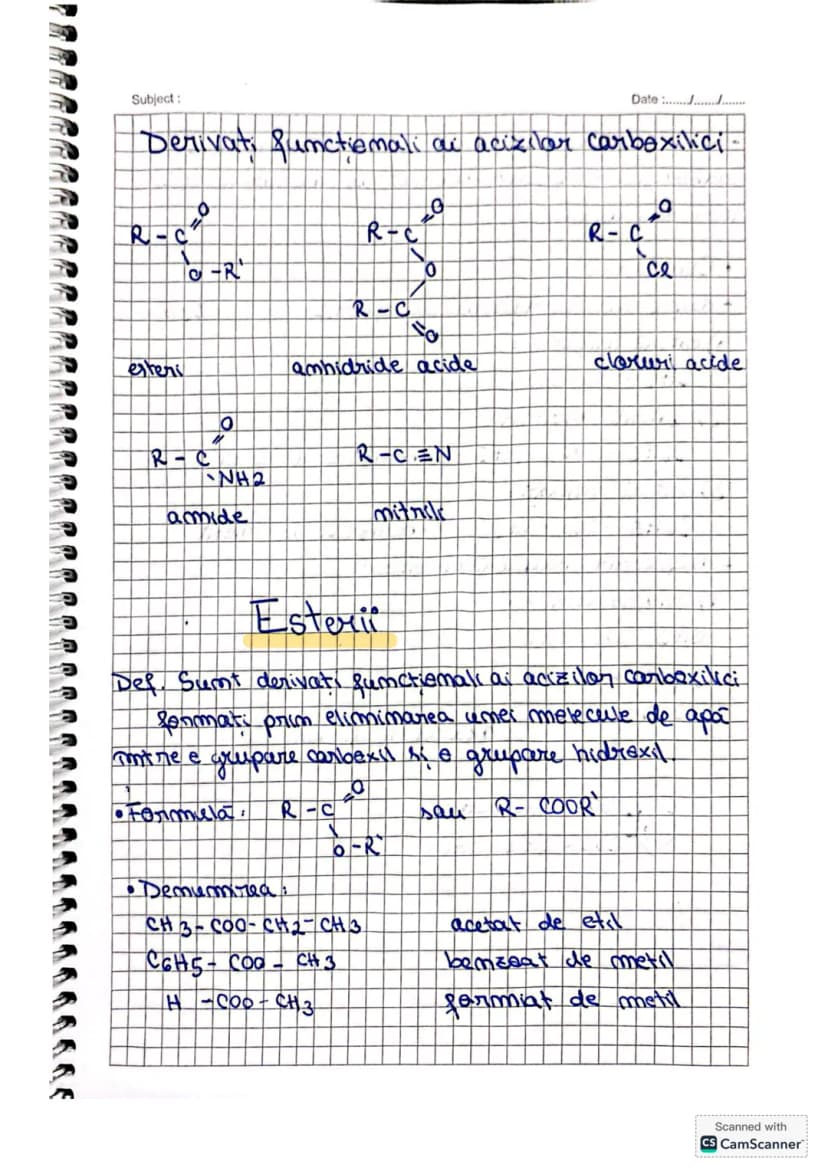 Subject :
Date :....../....../......
Derivați funcționali ai acizilor carboxilici
R - C =O O - R'
R - C =O O R - C =O
R - C =O Cl
esteri anhidride acide cloruri acide
R - C =O NH2
R - C ≡ N
amide nitrili
Esterii
Def. Sunt derivați funcționali ai acizilor carboxilici
formați prin eliminarea unei molecule de apă
între o grupare carboxil și o grupare hidroxil.
• Formulă: R - C =O O - R' sau R - COOR'
• Denumirea:
CH3 - COO - CH2 - CH3 acetat de etil
C6H5 - COO - CH3 benzoat de metil
H - COO - CH3 formiat de metil
Scanned with
CS CamScanner